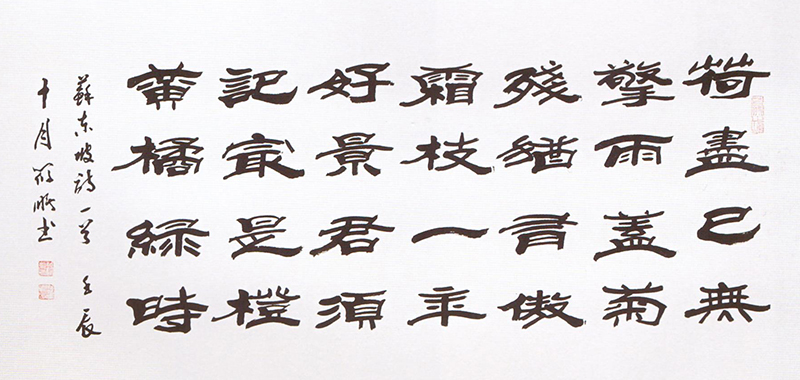 荷盡已無
擎雨蓋菊
殘猶有傲
霜枝一年
好景君須
記最是橙
黄橘緑時
蘇东坡詩一首 壬辰
十月 书